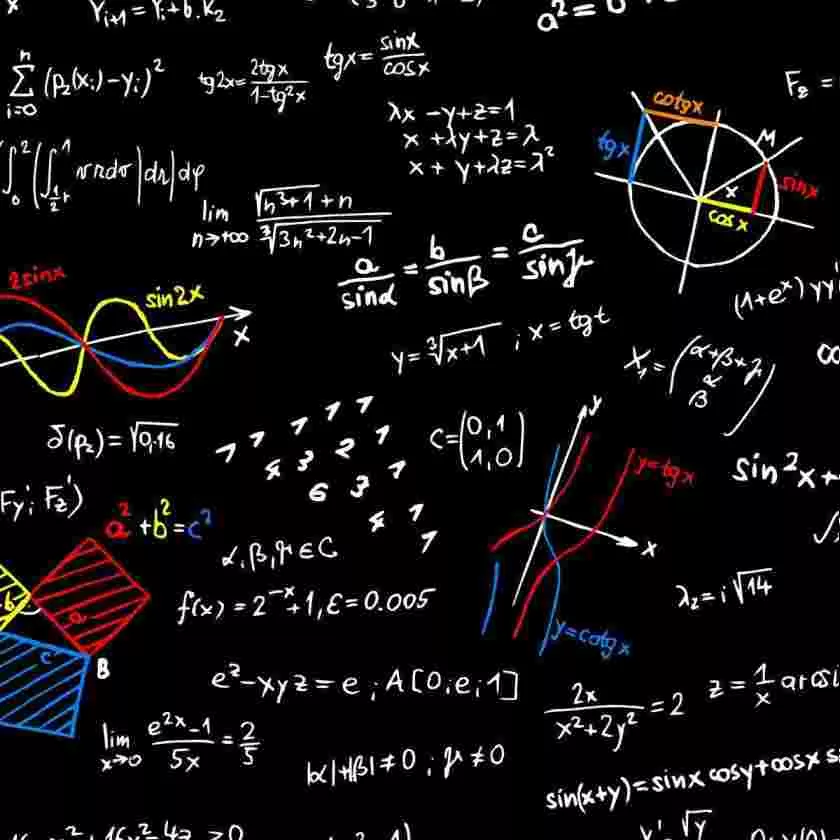 x
Y_{i+1} = Y_i + b.K_2
a² =
n
∑ (p₂(x_i) – y_i)²
i=0
tg2x = 2tgx / 1–tg²x
tgx = sinx / cosx
F_z =
λx – y + z = 1
x + λy + z = λ
x + y + λz = λ²
cotgx
tgx
M
x
sinx
cosx
lim n→+∞ (√(n³+1) + n) / ∛(3n²+2n–1)
a / sinα = b / sinβ = c / sinγ
2sinx
sin2x
x
(1+eˣ) yy'
y = ∛(x+1) ; x = tgt
X₁ = (α+β+γ
α
β)
δ(p₂) = √0,16
1 1 1 1 1
4 3 2 1
6 3 1
4 1
1
C = (0, 1
1, 0)
y
y=tgx
x
y=cotgx
sin²x +
Fy'; Fz')
a² + b² = c²
b
a
c
B
α, β, γ ∈ C
f(x) = 2⁻ˣ + 1, ε = 0.005
λ₂ = i√14
e² – xyz = e ; A[0; e; 1]
2x / x² + 2y² = 2
z = 1/x arcsi
lim x→0 (e²ˣ – 1) / 5x = 2/5
|α| + |β| ≠ 0 ; γ ≠ 0
sin(x+y) = sinx cosy + cosx s